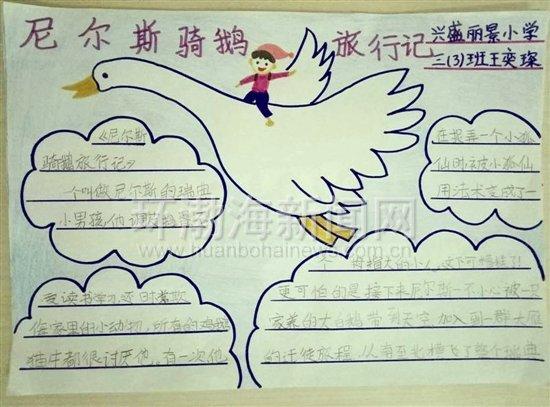 尼尔斯骑鹅旅行记
兴盛丽景小学
三(3)班王奕琛
《尼尔斯
骑鹅旅行记》
一个叫做尼尔斯的瑞典
小男孩,他调皮捣蛋不
爱读书学习,还时常欺
侮家里的小动物,所有的鸡鹅
猫牛都很讨厌他。有一次他
在捉弄一个小狐
仙时被小狐仙
用法术变成了一
个拇指大的小人,这下可惨了!
更可怕的是接下来尼尔斯一不小心被一只
家养的大白鹅带到天空加入到一群大雁
的迁徙旅程,从南至北横飞了整个瑞典
环渤海新闻网
www.huanbohainews.com.cn